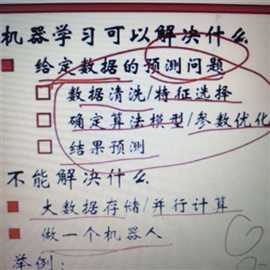 机器学习可以解决什么
给定数据的预测问题
数据清洗/特征选择
确定算法模型/参数优化
结果预测
不能解决什么
大数据存储/并行计算
做一个机器人
举例: